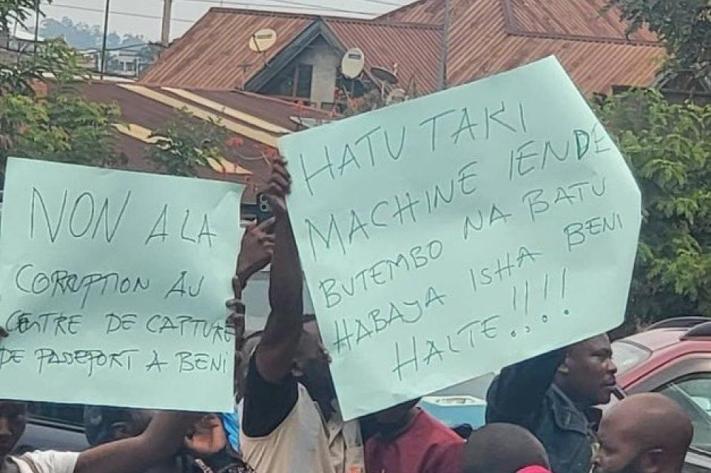 NON A LA
CORRUPTION AU
CENTRE DE CAPTURE
DE PASSEPORT A BENI
HATUTAKI
MACHINE IENDE
BUTEMBO NA BATU
HABAYA ISHA BENI
HALTE...!!!!